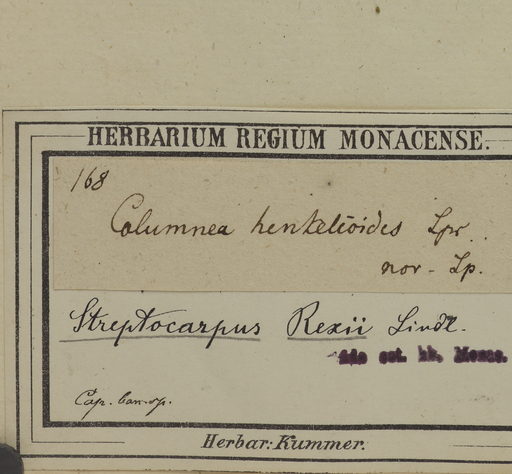 HERBARIUM REGIUM MONACENSE.
168
Columnea henkelioides Spr.
nov. Sp.
Streptocarpus Rexii Lindl.
hb. Monac.
Cap. bon. sp.
Herbar: Kummer.